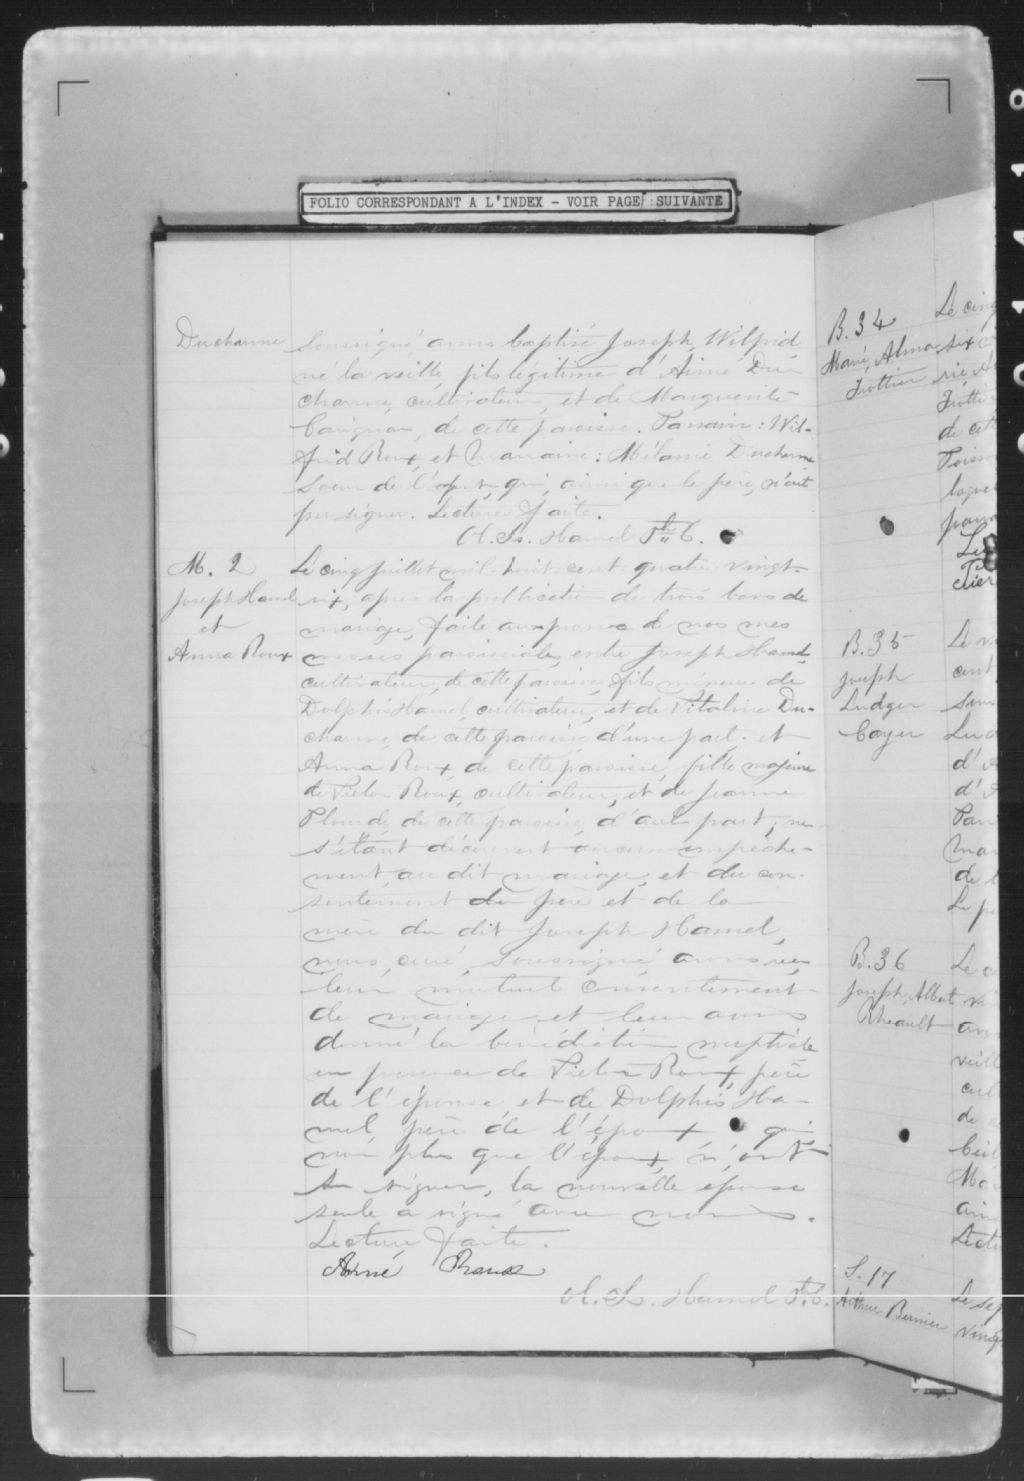 FOLIO CORRESPONDANT A L'INDEX - VOIR PAGE SUIVANTE
Ducharme
soussigné, avons baptisé Joseph Wilfrid
né la veille, fils légitime d'Aimé Du-
charme, cultivateur, et de Marguerite
de cette paroisse. Parrain: Wil-
frid Roux, et Marraine: Mélanie Ducharme
soeur de l'enfant qui, ainsi que le père, n'ont
pu signer. Lecture faite.
Hamel Ptre C.
M. 2
Joseph Hamel
et
Anna Roux
Le cinq juillet mil-huit-cent-quatre-vingt-
six, après la publication de trois bans de
mariage, faite aux prones de nos mes
messes paroissiales, entre Joseph Hamel,
cultivateur, de cette paroisse, fils mineur de
Dolphis Hamel, cultivateur, et de Vitaline Du-
charme, de cette paroisse d'une part; et
Anna Roux, de cette paroisse, fille majeure
de Victor Roux, cultivateur, et de Jeanne
Plourde de cette paroisse, d'autre part; ne
s'étant découvert aucun empêche-
ment au dit mariage, et du con-
sentement du père et de la
mère du dit Joseph Hamel,
nous, curé, soussigné, avons reçu
leur mutuel consentement
de mariage et leur avons
donné la bénédiction nuptiale
en présence de Victor Roux, père
de l'épouse, et de Dolphis Ha-
mel, père de l'époux qui,
non plus que l'époux, n'ont
su signer, la nouvelle épouse
seule a signé avec nous.
Lecture faite.
Roux
Hamel Ptre C.
B. 34
Marie, Alma
Trottier
Le cinq
six
de cette
B. 35
Joseph
Ludger
cent
B. 36
Joseph, Albert
Rheault
S. 17
Arthur Bernier
Le sep
ving